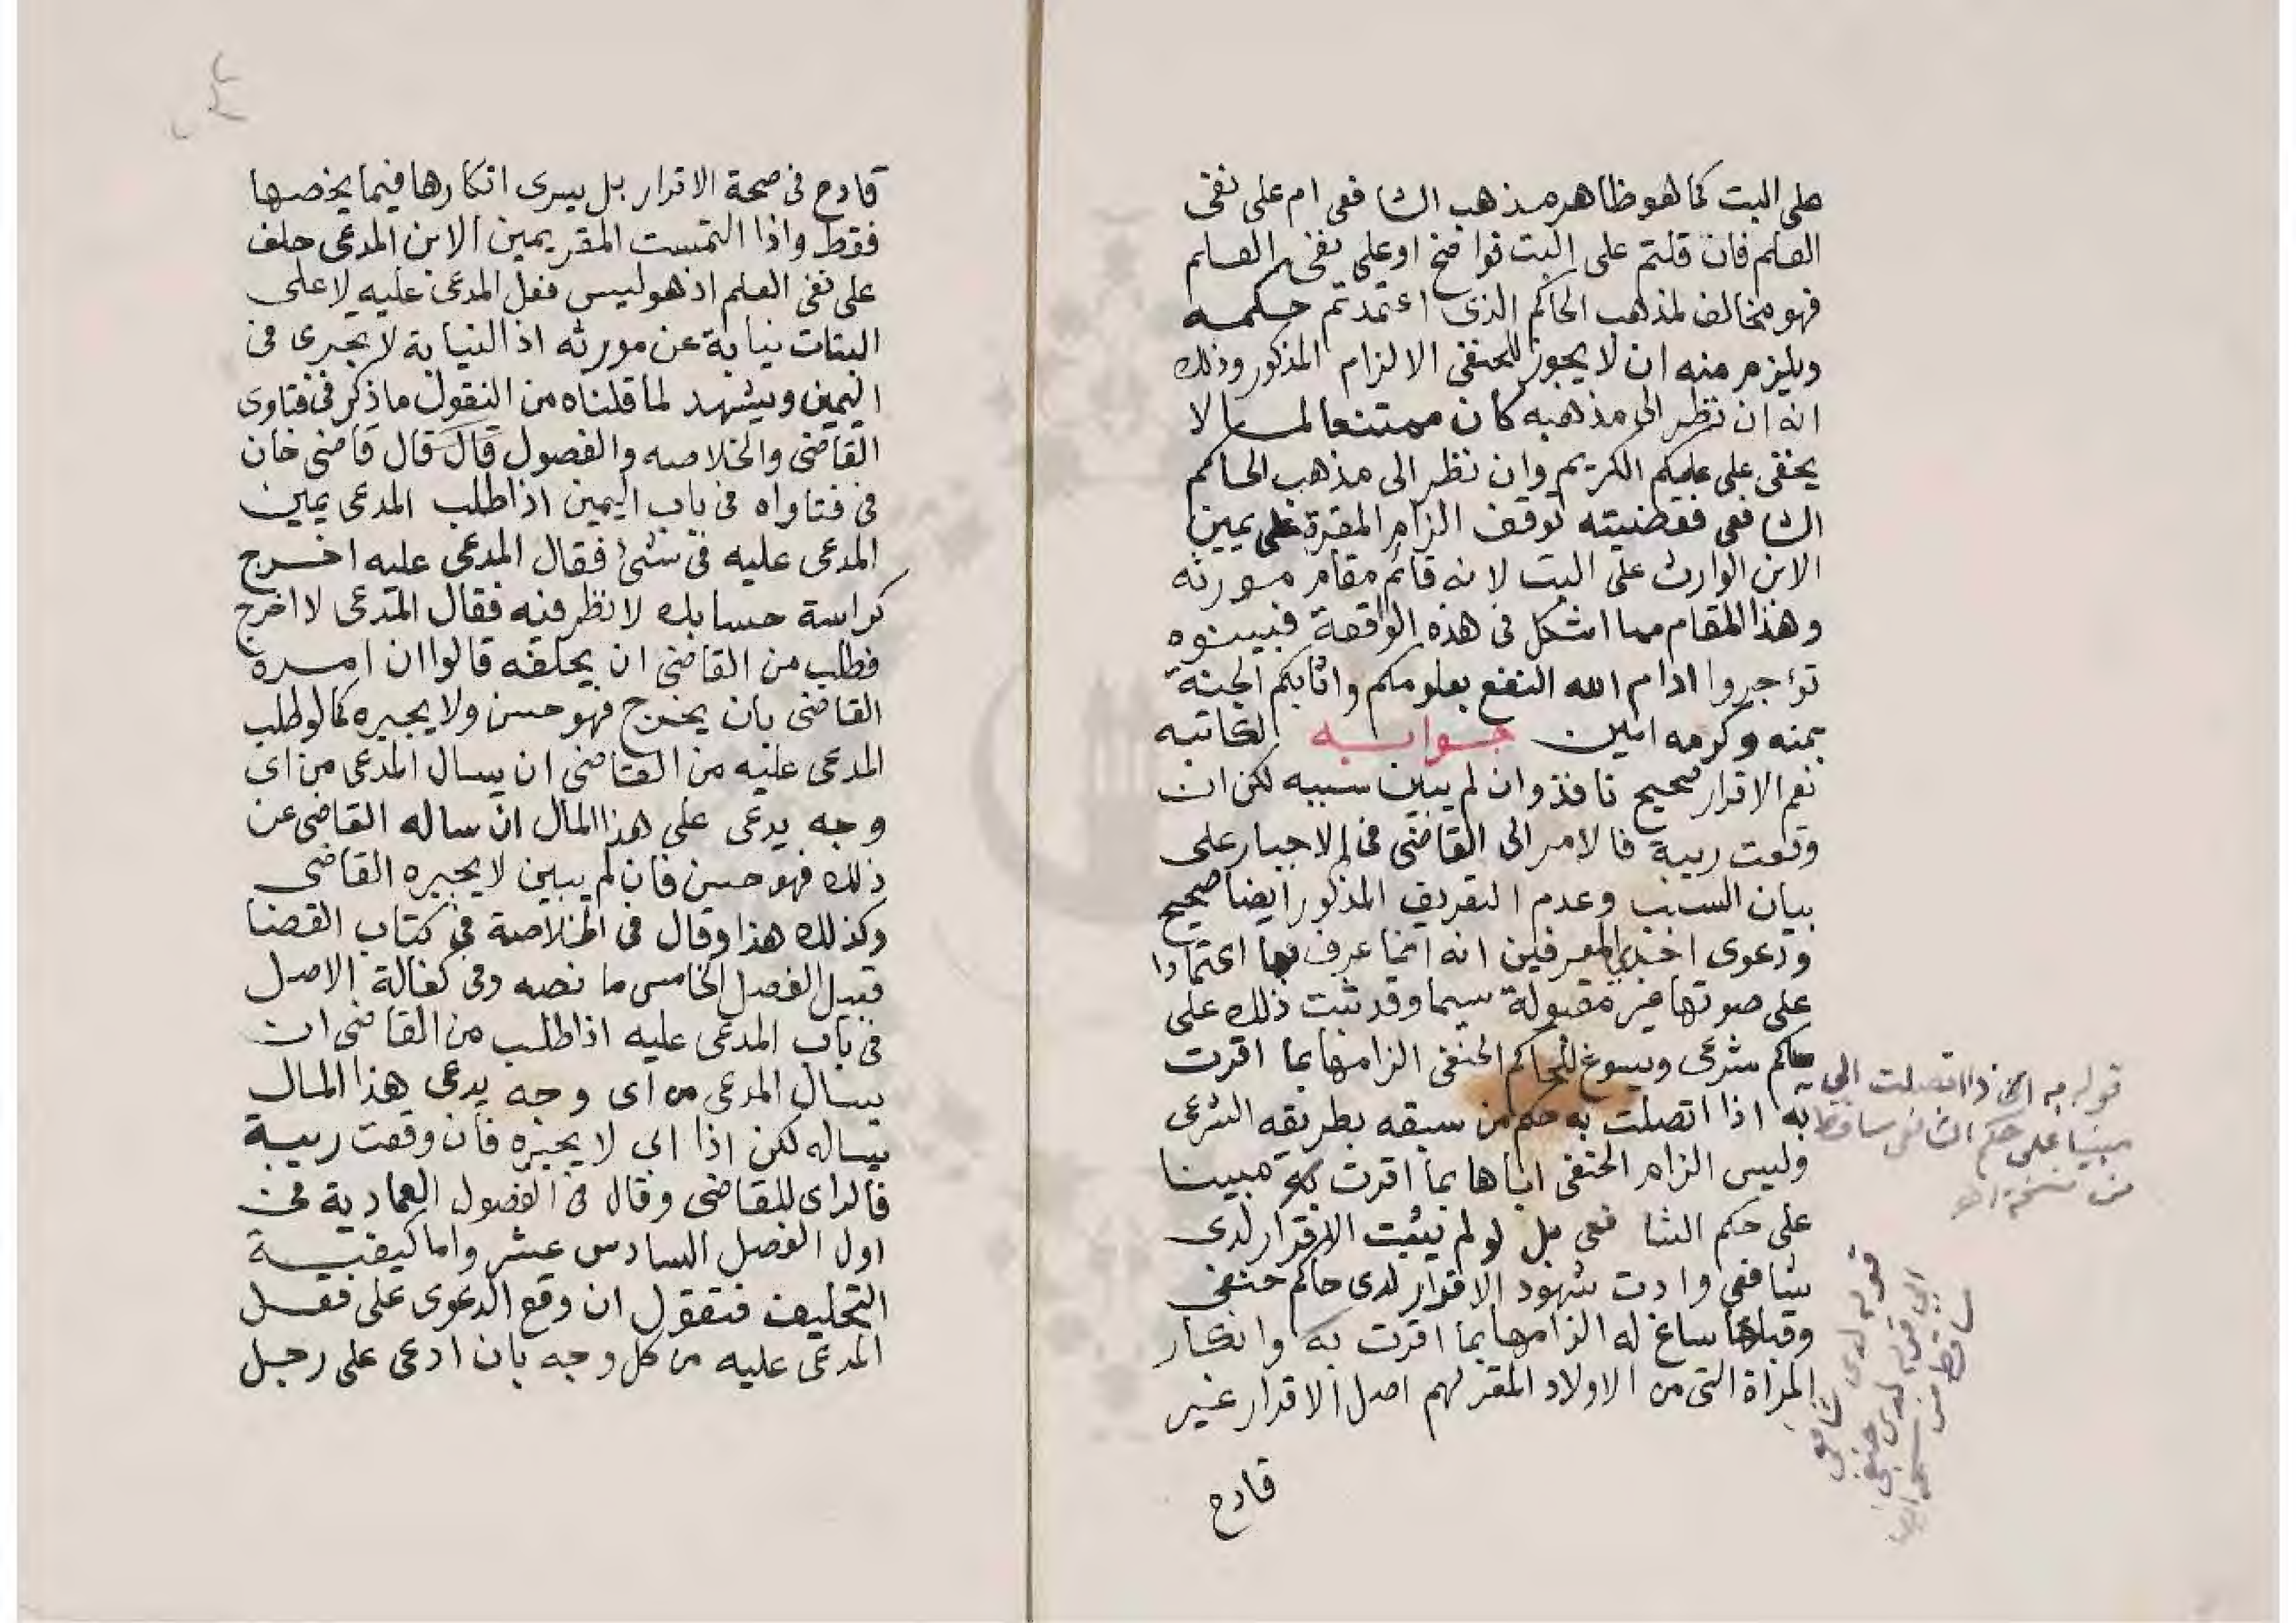 على البت كما هو ظاهر مذهب الشافعى ام على نفى
العلم فان قلتم على البت فواضح او على نفى العلم
فهو مخالف لمذهب الحاكم الذى اعتمدتم حكمه
ويلزم منه ان لا يجوز للحنفى الالزام المذكور وذلك
انه ان نظر الى مذهبه كان ممتنعا لما لا
يخفى على علمكم الكريم وان نظر الى مذهب الحاكم
الشافعى فقضيته توقف الزام المقرة على يمين
الابن الوارث على البت لانه قائم مقام مورثه
وهذا المقام مما اشكل فى هذه الواقعة فبينوه
تؤجروا ادام الله النفع بعلومكم واثابكم الجنة
بمنه وكرمه امين جوابه لكاتبه
نعم الاقرار صحيح نافذ وان لم يبين سببه لكن ان
وقعت ريبة فالامر الى القاضى فى الاجبار على
بيان السبب وعدم التعريف المذكور ايضا صحيح
ودعوى احد المعرفين انه انما عرف بها اعتمادا
على صوتها غير مقبولة سيما وقد ثبت ذلك على
حاكم شرعى ويسوغ للحاكم الحنفى الزامها بما اقرت
به اذا اتصلت به حكم من سبقه بطريقه الشرعى
وليس الزام الحنفى اياها بما اقرت به مبينا
على حكم الشافعى بل لو لم يثبت الاقرار لدى
شافعى وادت شهود الاقرار لدى حاكم حنفى
وقبلها ساغ له الزامها بما اقرت به وانكار
المراة التى من الاولاد المقر لهم اصل الاقرار غير
قادح
قوله به اذا اتصلت الى
مبنيا على حكم الشافعى ساقط
من نسخة اهـ
قوله لدى شافعى
الى قوله لدى حنفى
ساقط من نسخة
قادح فى صحة الاقرار بل يسرى انكارها فيما يخصها
فقط واذا التمست المقر يمين الابن المدعى حلف
على نفى العلم اذ هو ليس فعل المدعى عليه لا على
البتات نيابة عن مورثه اذ النيابة لا تجرى فى
اليمين ويشهد لما قلناه من النقول ما ذكر فى فتاوى
القاضى والخلاصه والفصول قال قال قاضى خان
فى فتاواه فى باب اليمين اذا طلب المدعى يمين
المدعى عليه فى شئ فقال المدعى عليه اخرج
كراسة حسابك لانظر فيه فقال المدعى لا اخرج
فطلب من القاضى ان يحلفه قالوا ان امره
القاضى بان يخرج فهو حسن ولا يجبره كما لو طلب
المدعى عليه من القاضى ان يسال المدعى من اى
وجه يدعى على هذا المال ان ساله القاضى عن
ذلك فهو حسن فان لم يبين لا يجبره القاضى
وكذلك هذا وقال فى الخلاصة فى كتاب القضا
قبيل الفصل الخامس ما نصه وفى كفالة الاصل
فى باب المدعى عليه اذا طلب من القاضى ان
يسال المدعى من اى وجه يدعى هذا المال
يساله لكن اذا ابى لا يجبره فان وقعت ريبة
فالراى للقاضى وقال فى الفصول العمادية فى
اول الفصل السادس عشر واما كيفية
التحليف فنقول ان وقع الدعوى على فعل
المدعى عليه من كل وجه بان ادعى على رجل